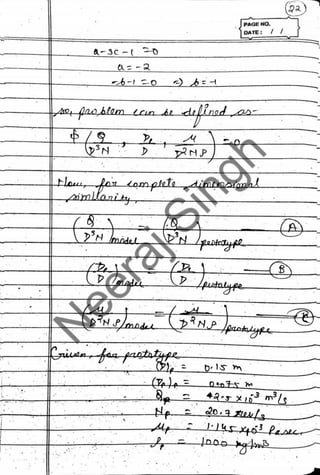 22
PAGE NO.
DATE: / /
a-3c-1 =0
a = -2
-b-1 =0 => b = -1
so, problem can be defined as-
φ ( Q/D³N , De/D , μ/D²Nρ ) =0
Now, for complete dimensional
similarity,
(Q/D³N)model = (Q/D³N)prototype — A
(De/D)model = (De/D)prototype — B
(μ/D²Nρ)model = (μ/D²Nρ)prototype — C
Given, for prototype
(D)p = 0.15 m
(De)p = 0.075 m
Qp = 42.5 x 10⁻³ m³/s
Np = 20.7 rev/s
μp = 1.145 x 10⁻³ Pa sec.
ρp = 1000 kg/m³
Neeraj Singh